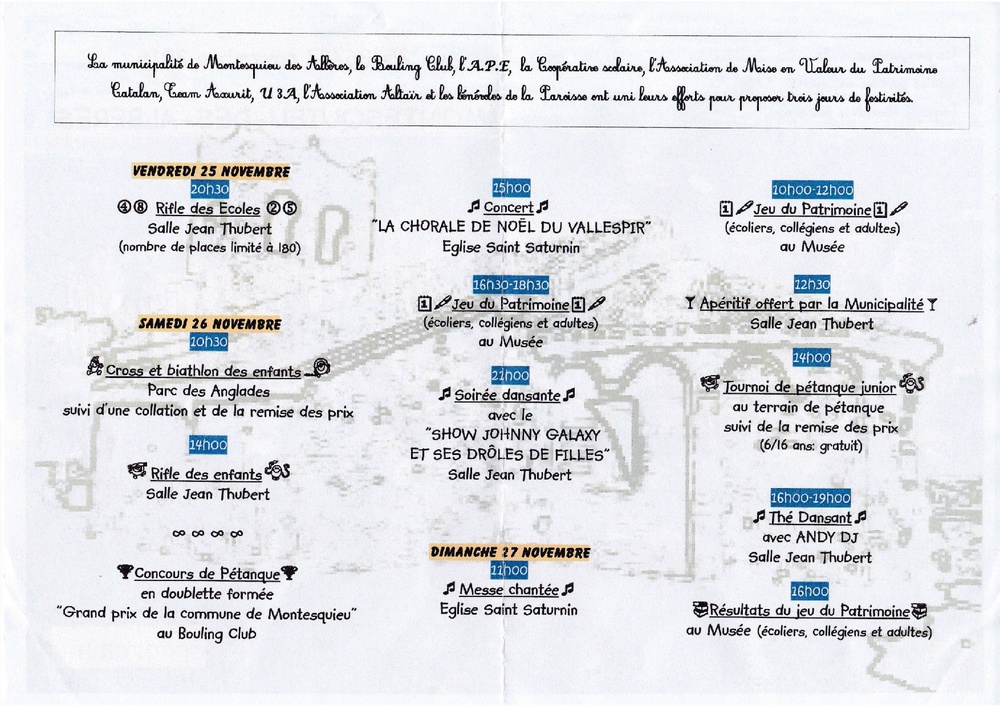 La municipalité de Montesquieu des Albères, le Bouling Club, l'A.P.E, la Coopérative scolaire, l'Association de Mise en Valeur du Patrimoine
Catalan, Team Axurit, U 3A, l'Association Altaïr et les bénévoles de la Paroisse ont uni leurs efforts pour proposer trois jours de festivités.
VENDREDI 25 NOVEMBRE
20h30
④⑧ Rifle des Ecoles ②⑤
Salle Jean Thubert
(nombre de places limité à 180)
SAMEDI 26 NOVEMBRE
10h30
Cross et biathlon des enfants
Parc des Anglades
suivi d'une collation et de la remise des prix
14h00
Rifle des enfants
Salle Jean Thubert
∞ ∞ ∞ ∞
Concours de Pétanque
en doublette formée
"Grand prix de la commune de Montesquieu"
au Bouling Club
15h00
♫ Concert ♫
"LA CHORALE DE NOËL DU VALLESPIR"
Eglise Saint Saturnin
16h30-18h30
1 Jeu du Patrimoine 1
(écoliers, collégiens et adultes)
au Musée
21h00
♫ Soirée dansante ♫
avec le
"SHOW JOHNNY GALAXY
ET SES DRÔLES DE FILLES"
Salle Jean Thubert
DIMANCHE 27 NOVEMBRE
11h00
♫ Messe chantée ♫
Eglise Saint Saturnin
10h00-12h00
1 Jeu du Patrimoine 1
(écoliers, collégiens et adultes)
au Musée
12h30
Apéritif offert par la Municipalité
Salle Jean Thubert
14h00
Tournoi de pétanque junior
au terrain de pétanque
suivi de la remise des prix
(6/16 ans: gratuit)
16h00-19h00
♫ Thé Dansant ♫
avec ANDY DJ
Salle Jean Thubert
16h00
Résultats du jeu du Patrimoine
au Musée (écoliers, collégiens et adultes)